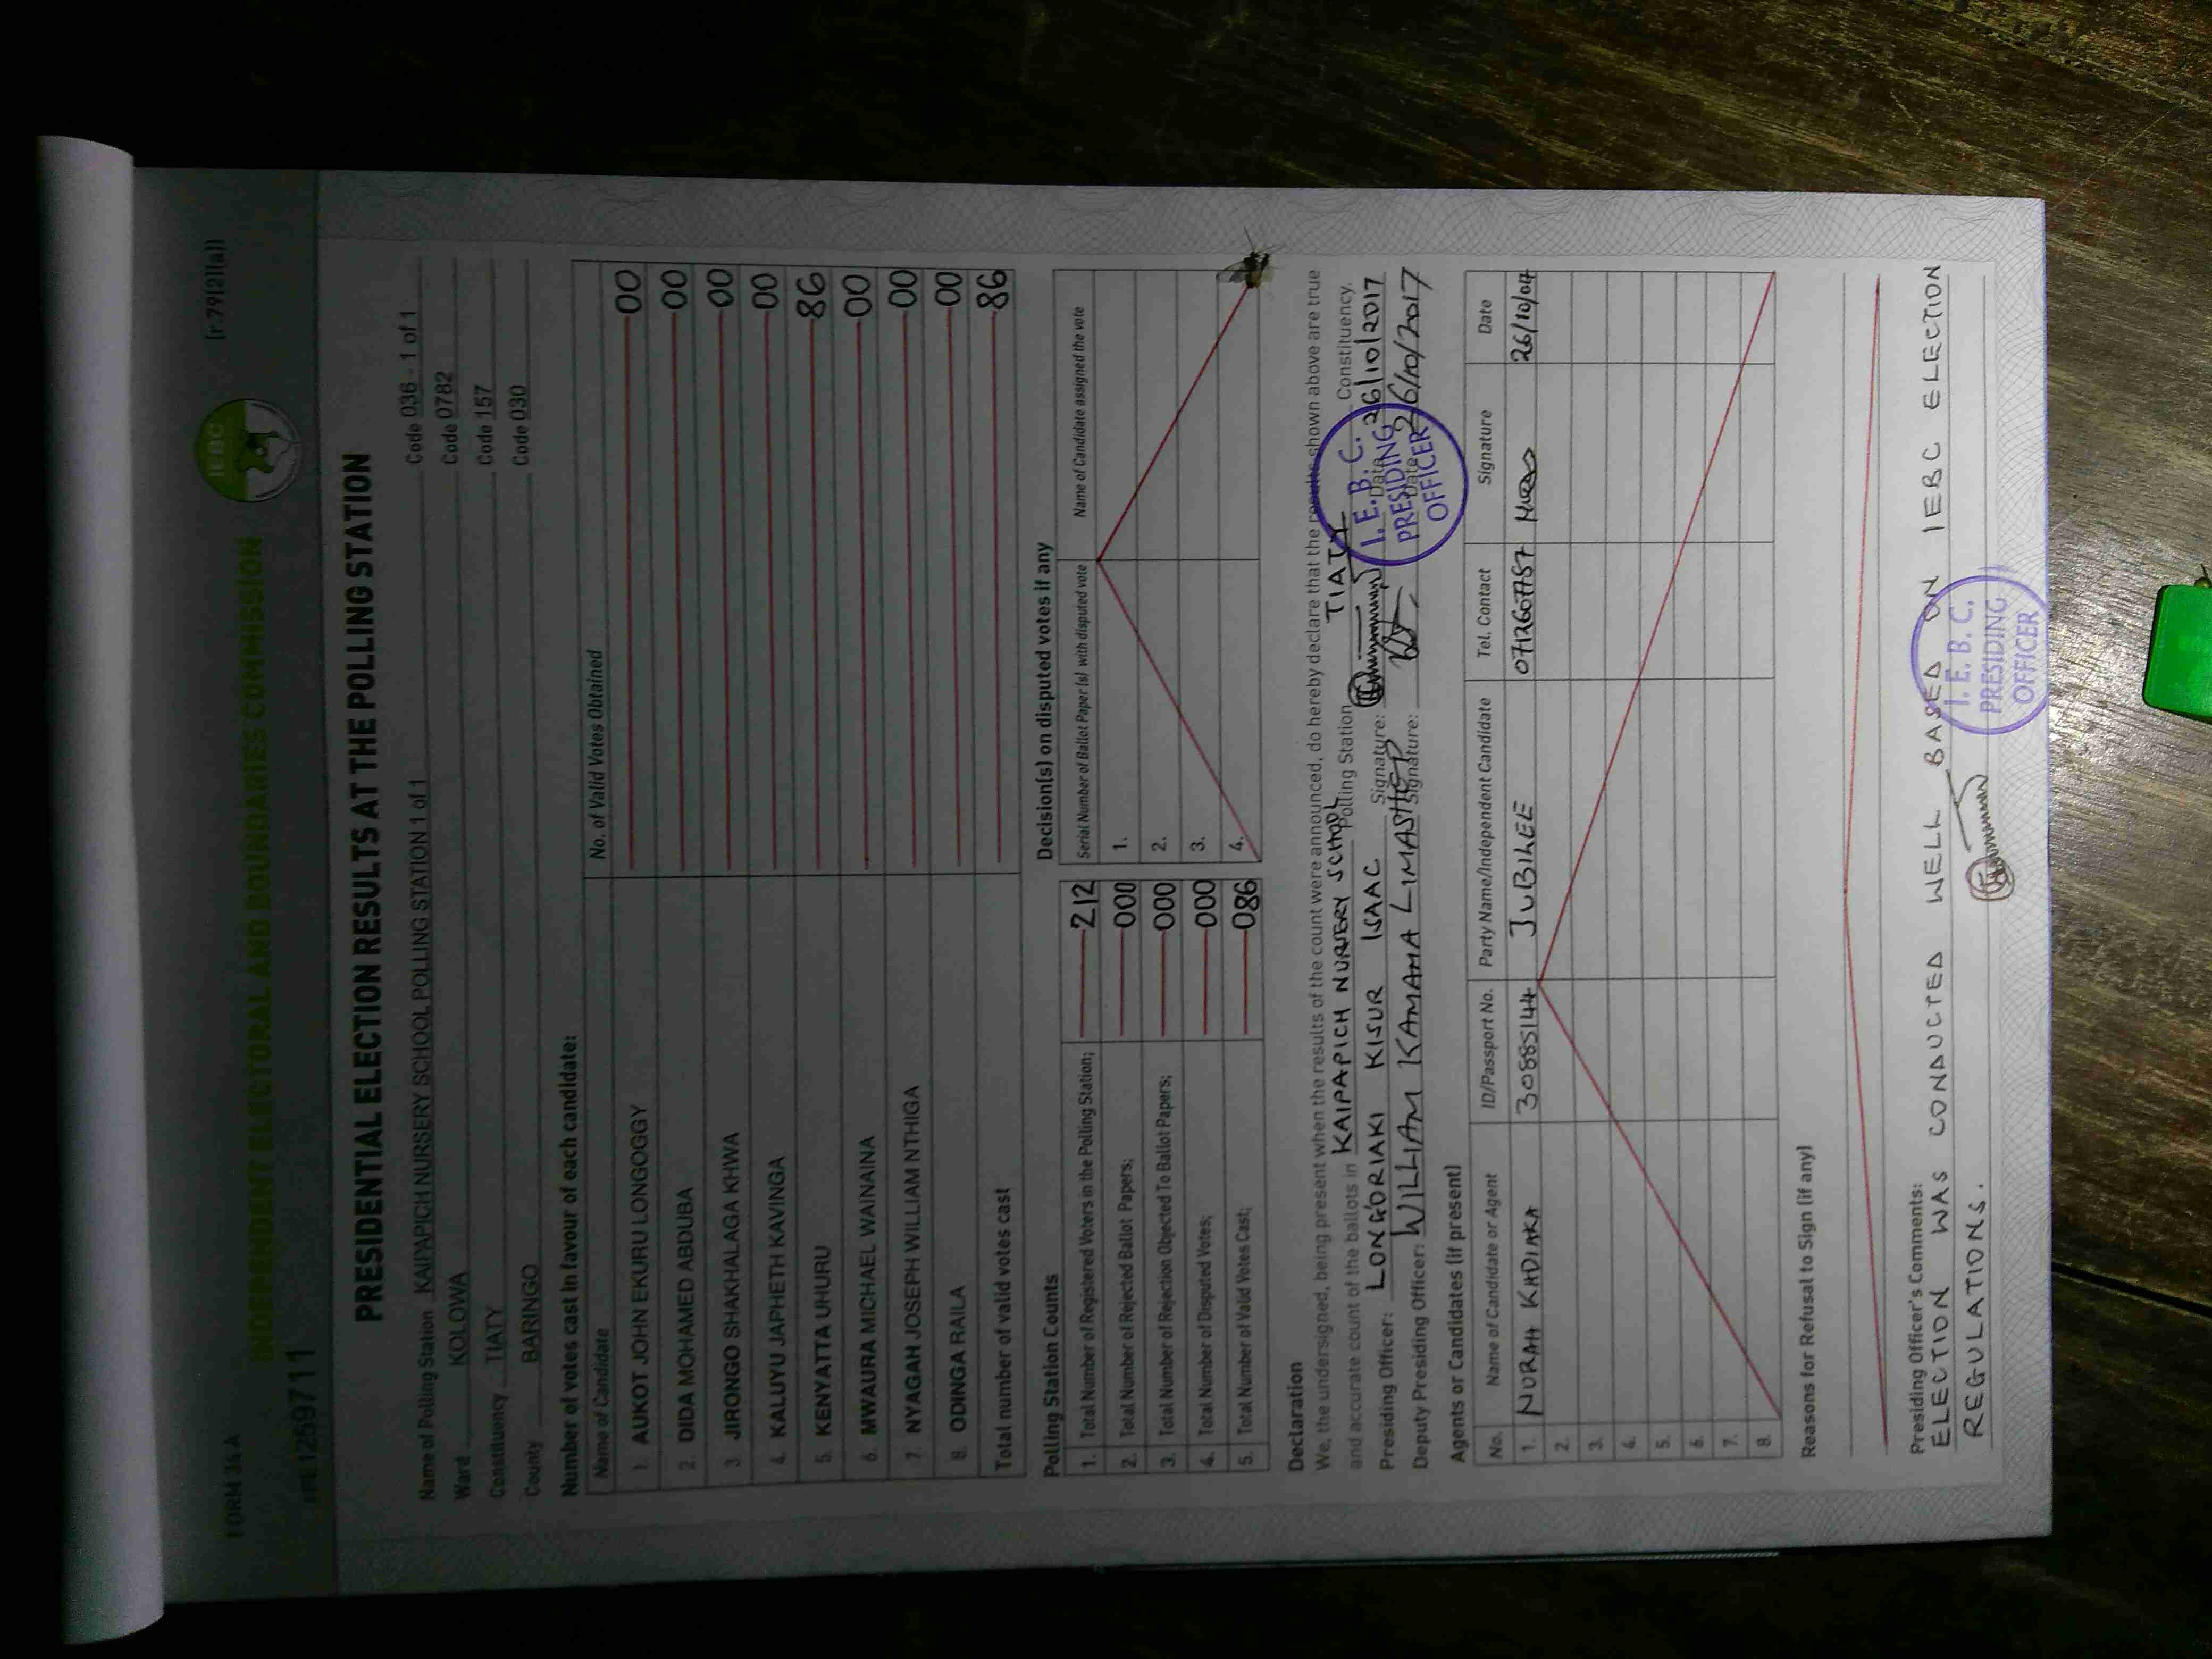 FORM 34 A
[r.79(2)(a)]
IEBC
INDEPENDENT ELECTORAL AND BOUNDARIES COMMISSION
1259711
PRESIDENTIAL ELECTION RESULTS AT THE POLLING STATION
Name of Polling Station KAIPAPICH NURSERY SCHOOL POLLING STATION 1 of 1 Code 036 - 1 of 1
Ward KOLOWA Code 0782
Constituency TIATY Code 157
County BARINGO Code 030
Number of votes cast in favour of each candidate:
Name of Candidate No. of Valid Votes Obtained
1. AUKOT JOHN EKURU LONGOGGY 00
2. DIDA MOHAMED ABDUBA 00
3. JIRONGO SHAKHALAGA KHWA 00
4. KALUYU JAPHETH KAVINGA 00
5. KENYATTA UHURU 86
6. MWAURA MICHAEL WAINAINA 00
7. NYAGAH JOSEPH WILLIAM NTHIGA 00
8. ODINGA RAILA 00
Total number of valid votes cast 86
Polling Station Counts
1. Total Number of Registered Voters in the Polling Station; 212
2. Total Number of Rejected Ballot Papers; 000
3. Total Number of Rejection Objected To Ballot Papers; 000
4. Total Number of Disputed Votes; 000
5. Total Number of Valid Votes Cast; 086
Decision(s) on disputed votes if any
Serial Number of Ballot Paper (s) with disputed vote Name of Candidate assigned the vote
1.
2.
3.
4.
Declaration
We, the undersigned, being present when the results of the count were announced, do hereby declare that the results shown above are true
and accurate count of the ballots in KAIPAPICH NURSERY SCHOOL Polling Station TIATY Constituency.
Presiding Officer: LONG'ORIAKI KISUR ISAAC Signature: Date 26/10/2017
Deputy Presiding Officer: WILLIAM KAMAMA LIMASIEP Signature: Date 26/10/2017
I. E. B. C.
PRESIDING
OFFICER
Agents or Candidates (if present)
No. Name of Candidate or Agent ID/Passport No. Party Name/Independent Candidate Tel. Contact Signature Date
1. NORAH KADIAKA 30885144 JUBILEE 0712607757 26/10/04
2.
3.
4.
5.
6.
7.
8.
Reasons for Refusal to Sign (if any)
Presiding Officer's Comments:
ELECTION WAS CONDUCTED WELL BASED ON IEBC ELECTION
REGULATIONS.
I. E. B. C.
PRESIDING
OFFICER